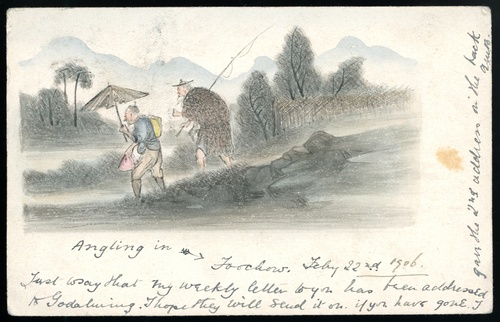 Angling in
Foochow. Feby 22nd 1906.
Just to say that my weekly letter to you has been addressed
to Godalming. I hope they will send it on. if you have gone. I
gave the 2nd address on the back